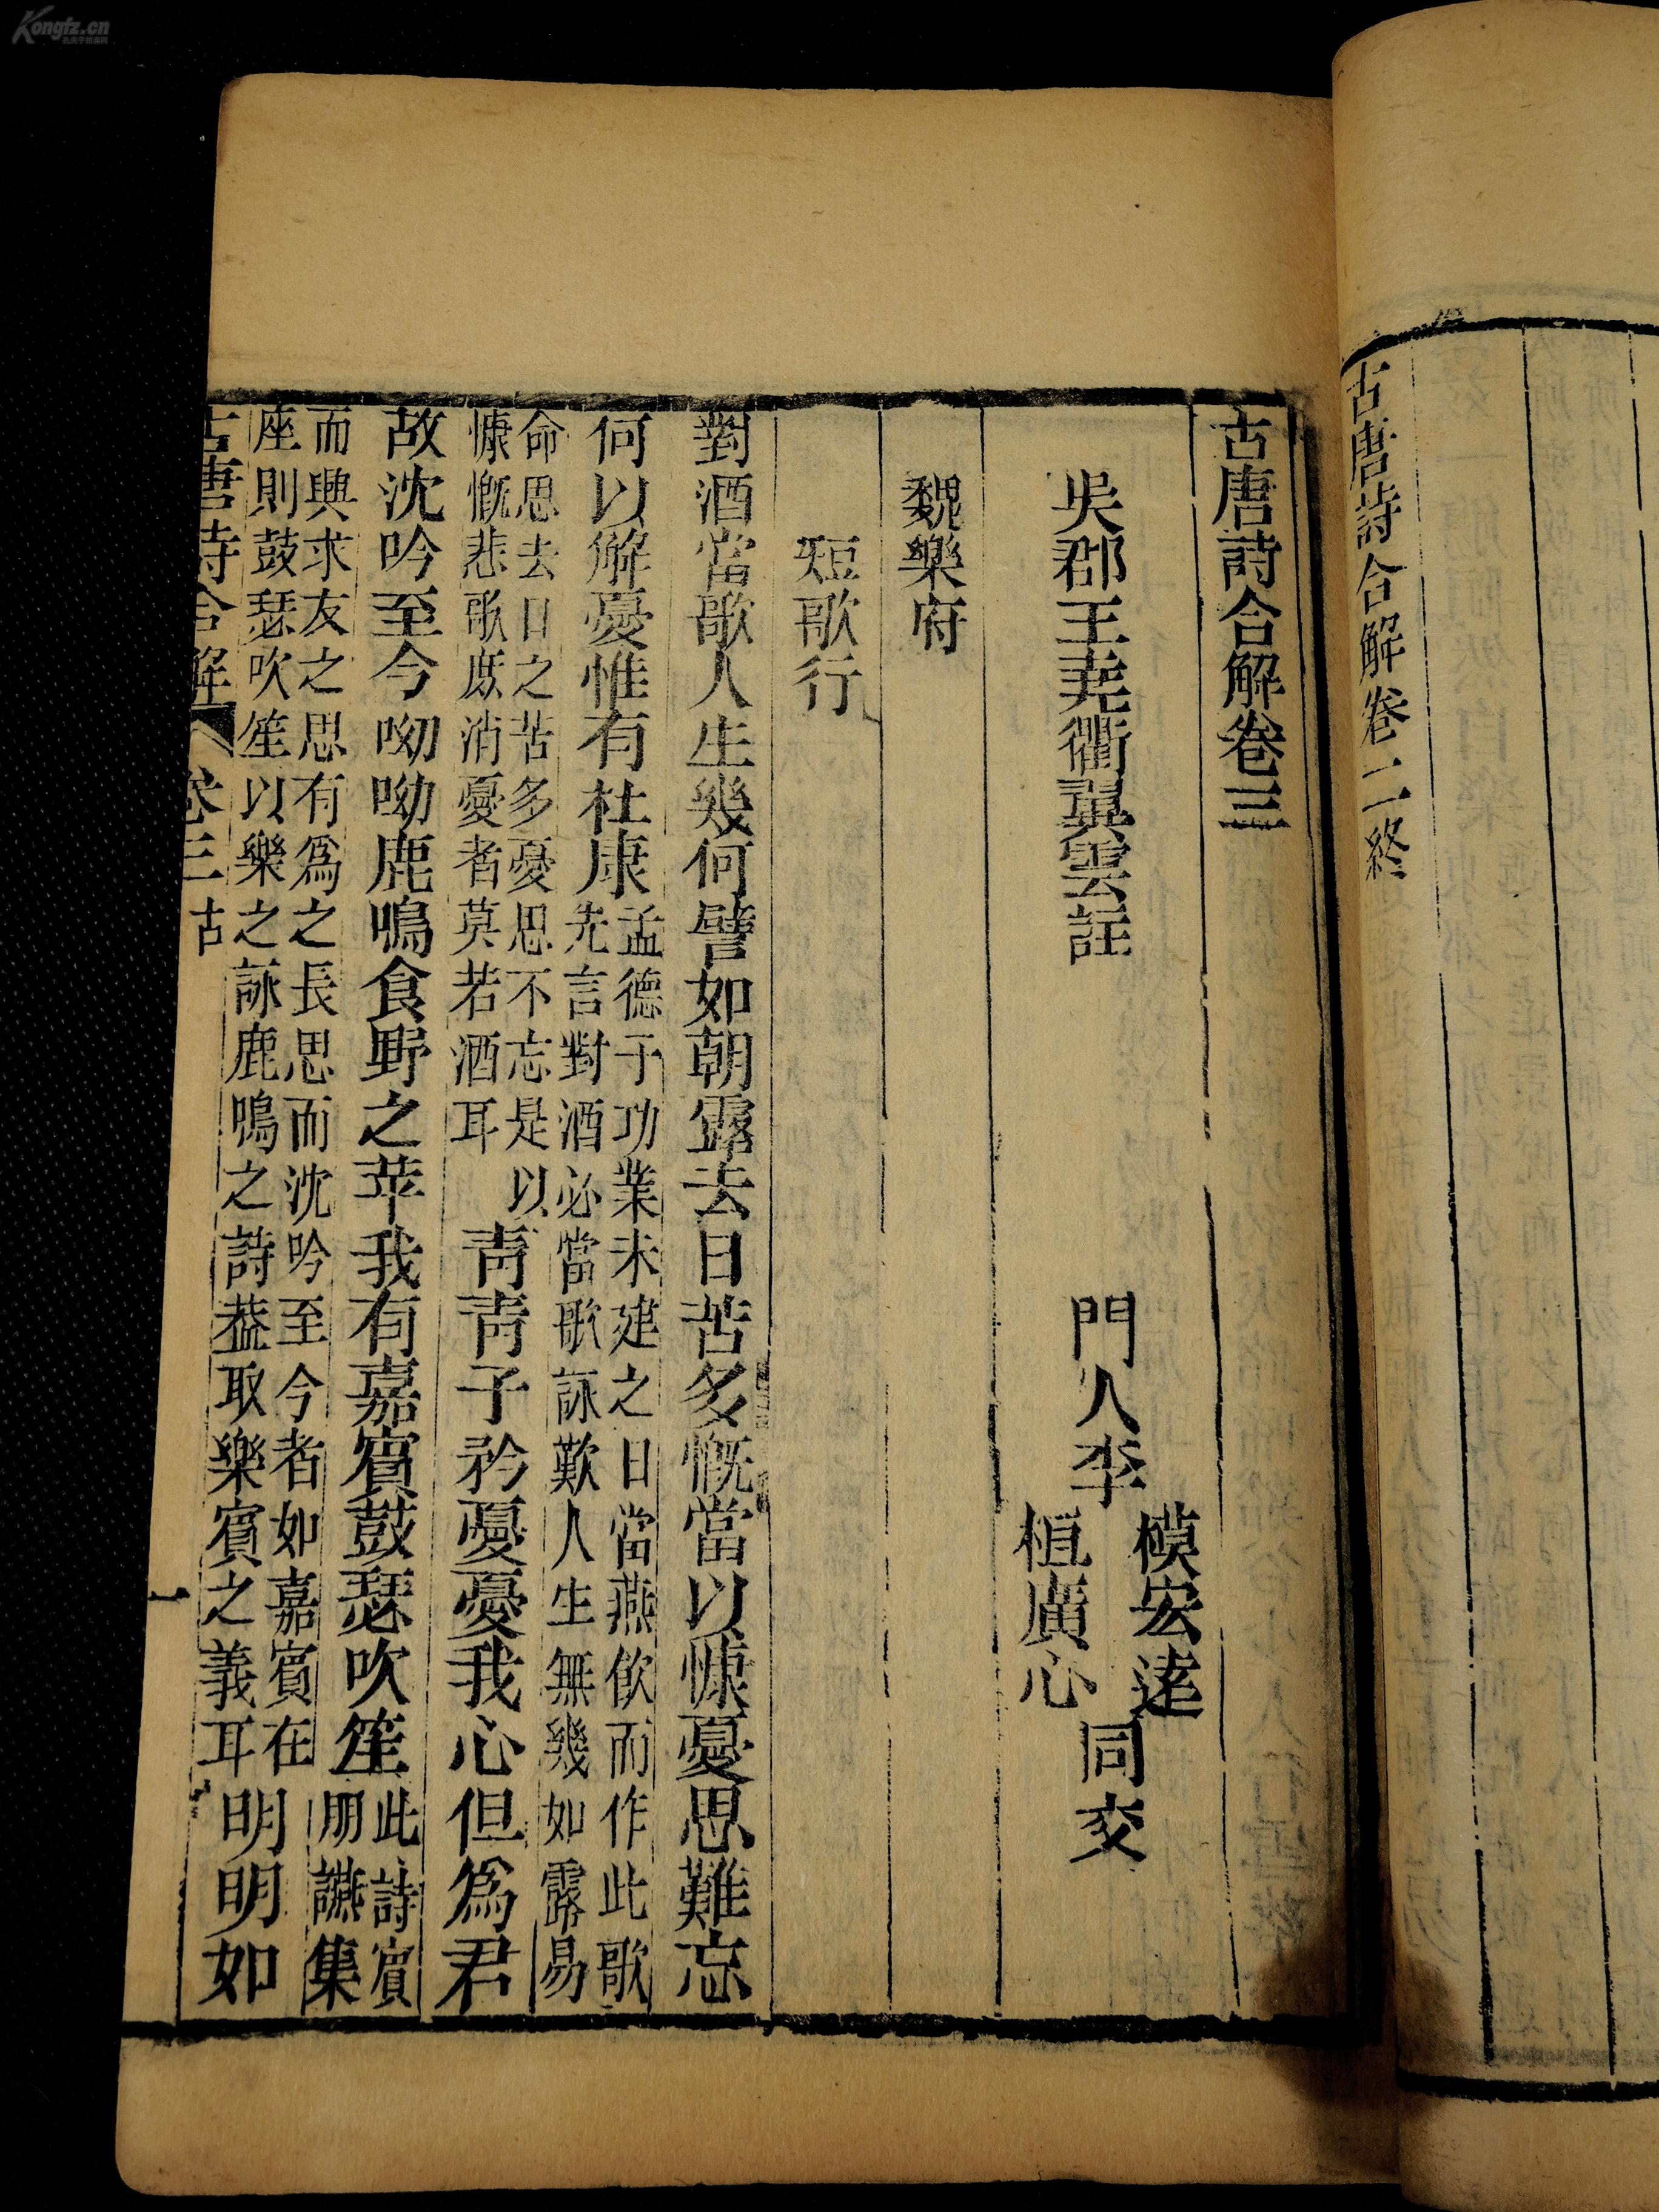 古唐詩合解卷二終
古唐詩合解卷三
吳郡王堯衢翼雲註
門人李
模宏遠
桓廣心
同交
魏樂府
短歌行
對酒當歌人生幾何譬如朝露去日苦多慨當以慷憂思難忘
何以解憂惟有杜康
孟德于功業未建之日當燕飲而作此歌
先言對酒必當歌詠歎人生無幾如露易
命思去日之苦多憂思不忘是以
慷慨悲歌庶消憂者莫若酒耳
青青子衿憂憂我心但爲君
故沈吟至今呦呦鹿鳴食野之苹我有嘉賓鼓瑟吹笙
此詩賓
朋讌集
而興求友之思有爲之長思而沈吟至今者如嘉賓在
座則鼓瑟吹笙以樂之詠鹿鳴之詩葢取樂賓之義耳
明明如
古唐詩合解
卷三
古
Kongfz.cn